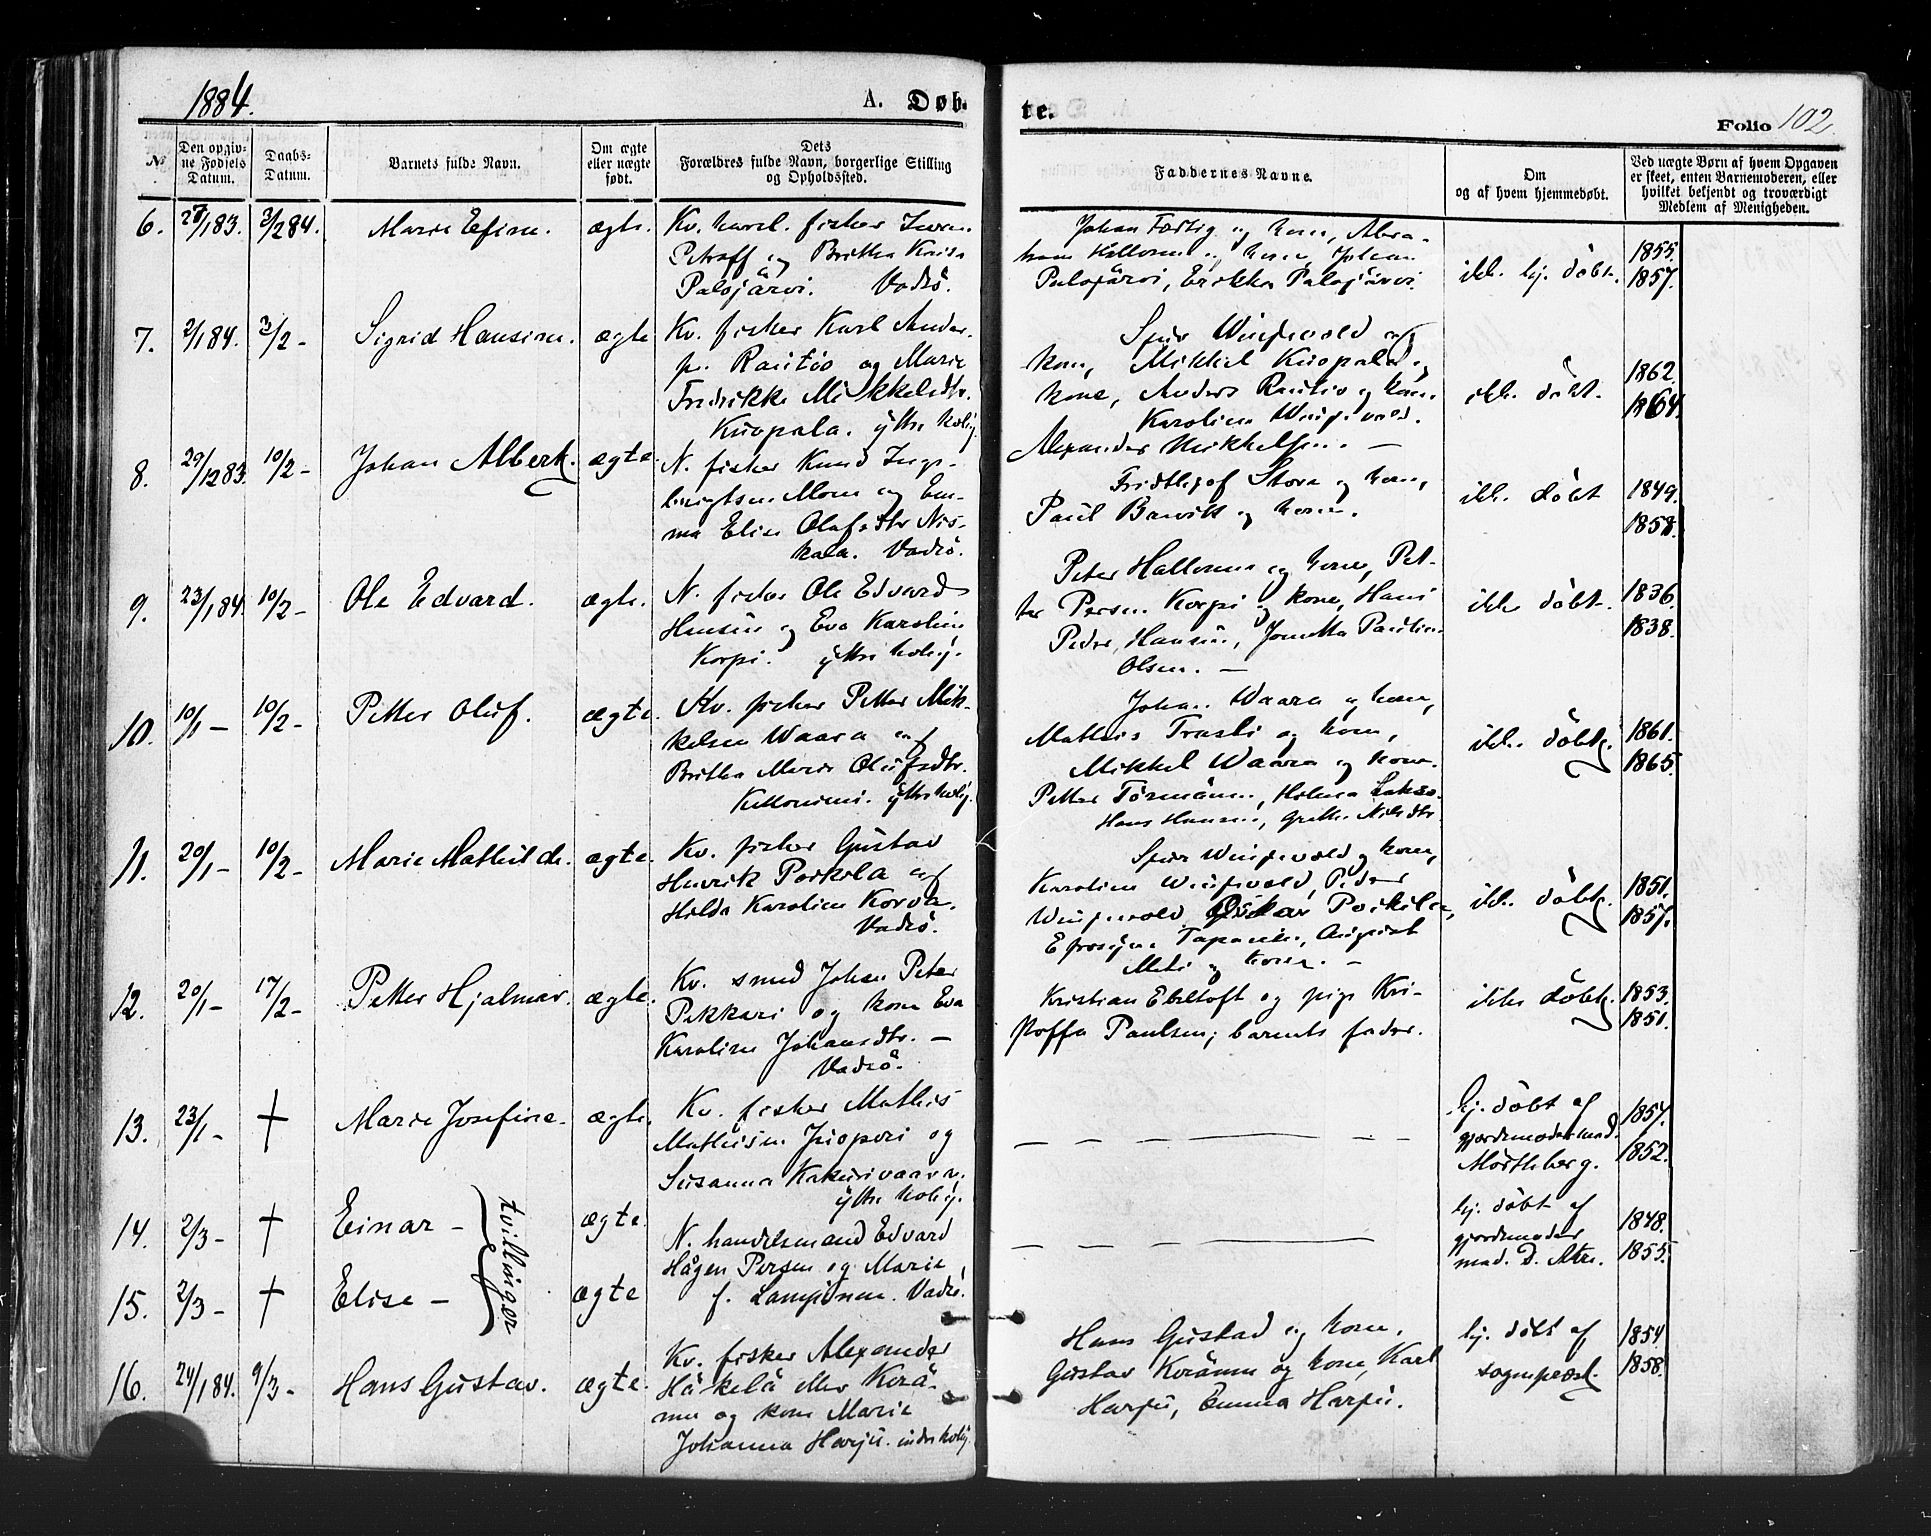 1884.
A. Døb-
te.
Folio 102
№
Den opgiv-
ne Fødsels
Datum.
Daabs-
Datum.
Barnets fulde Navn.
Om ægte
eller uægte
født.
Dets
Forældres fulde Navn, borgerlige Stilling
og Opholdssted.
Faddernes Navne.
Om
og af hvem hjemmedøbt.
Ved uægte Børn af hvem Opgaven
er skeet, enten Barnemoderen, eller
hvilket bekjendt og troværdigt
Medlem af Menigheden.
6. 27/1 83. 3/2 84. Marie Efine. ægte.
Kv. fisker Iwan
Petroff og Britha Kaisa
Palojärvi. Vadsö.
Johan Færtig og kone, Abra-
ham og kone, Johan
Palojärvi, Erikka Palojärvi.
ikke hj. döbt.
1855.
1857.
7. 2/1 84. 3/2 - Sigrid Hansine. ægte
Kv. fisker Karl Ander-
s. Rautio og Marie
Fredrikke Mikkelsdtr.
Kuopala. yttre kolig.
kone, Mikkel Kuopala og
kone, Anders Rautio og kone
Karoline
Alexander Mikkelsen. -
ikke döbt.
1862.
1864.
8. 29/12 83. 10/2 - Johan Albert. ægte.
N. fisker Knud Inge-
brigtsen Moen og Em-
ma Elise Olafsdtr Nis-
kala. Vadsö.
Fridthjof Store og kone,
Paul og kone.
ikke döbt
1849.
1858.
9. 23/1 84. 10/2 - Ole Edvard. ægte.
N. fisker Ole Edvard
Hansen og Eva Karoline
Korpi. yttre kolig.
Peter og kone, Pet-
ter Persen Korpi og kone, Hans
Peder Hansen, Jonetta Pauline
Olsen. -
ikke döbt.
1836.
1838.
10. 10/1 - 10/2 - Petter Oluf. ægte.
Kv. fisker Petter Mik-
kelsen Waara og
Britha Marie Olufsdtr.
yttre kolig.
Johan Waara og kone,
Mathis og kone,
Mikkel Waara og kone.
Petter Törmänen, Hilma
Hans Hansen, Grethe Nilsdtr
ikke döbt.
1861.
1865.
11. 20/1 - 10/2 - Marie Mathilde. ægte.
Kv. fisker Gustav
Henrik Poikela og
Hilda Karoline Korva.
Vadsö.
og kone,
Karoline Peder
Oskar Poikela,
August
og kone. -
ikke döbt.
1851.
1857.
12. 20/1 - 17/2 - Petter Hjalmar. ægte.
Kv. smed Johan Peter
Pekkari og kone Eva
Karoline Johansdtr. -
Vadsö.
Kristian Ebeltoft og pige Kri-
stoffa Paulsen; barnets fader.
ikke döbt.
1853.
1851.
13. 23/1 - † Marie Josefine. ægte.
Kv. fisker Mathis
Mathisen og
Susanna
yttre kolig.
hj. döbt af
gjordemoder mad.
Mörthberg.
1857.
1852.
14. 2/3 - † Einar - tvillinger ægte
N. handelsmand Edvard
Hågen Persen og Marie
f. Lampinen. Vadsö.
hj. döbt af
gjordemoder
mad. D.
1848.
1855.
15. 2/3 - † Elise - ægte
16. 24/1 84. 9/3 - Hans Gustav. ægte.
Kv. fisker Alexander
Häkelä eller Korä-
nen og kone Marie
Johanna Harju. indre kolig.
Hans Gustad og kone,
Gustav Koränen og kone, Karl
Harju, Emma Harju.
hj. döbt af
sogneprest.
1854
1858.